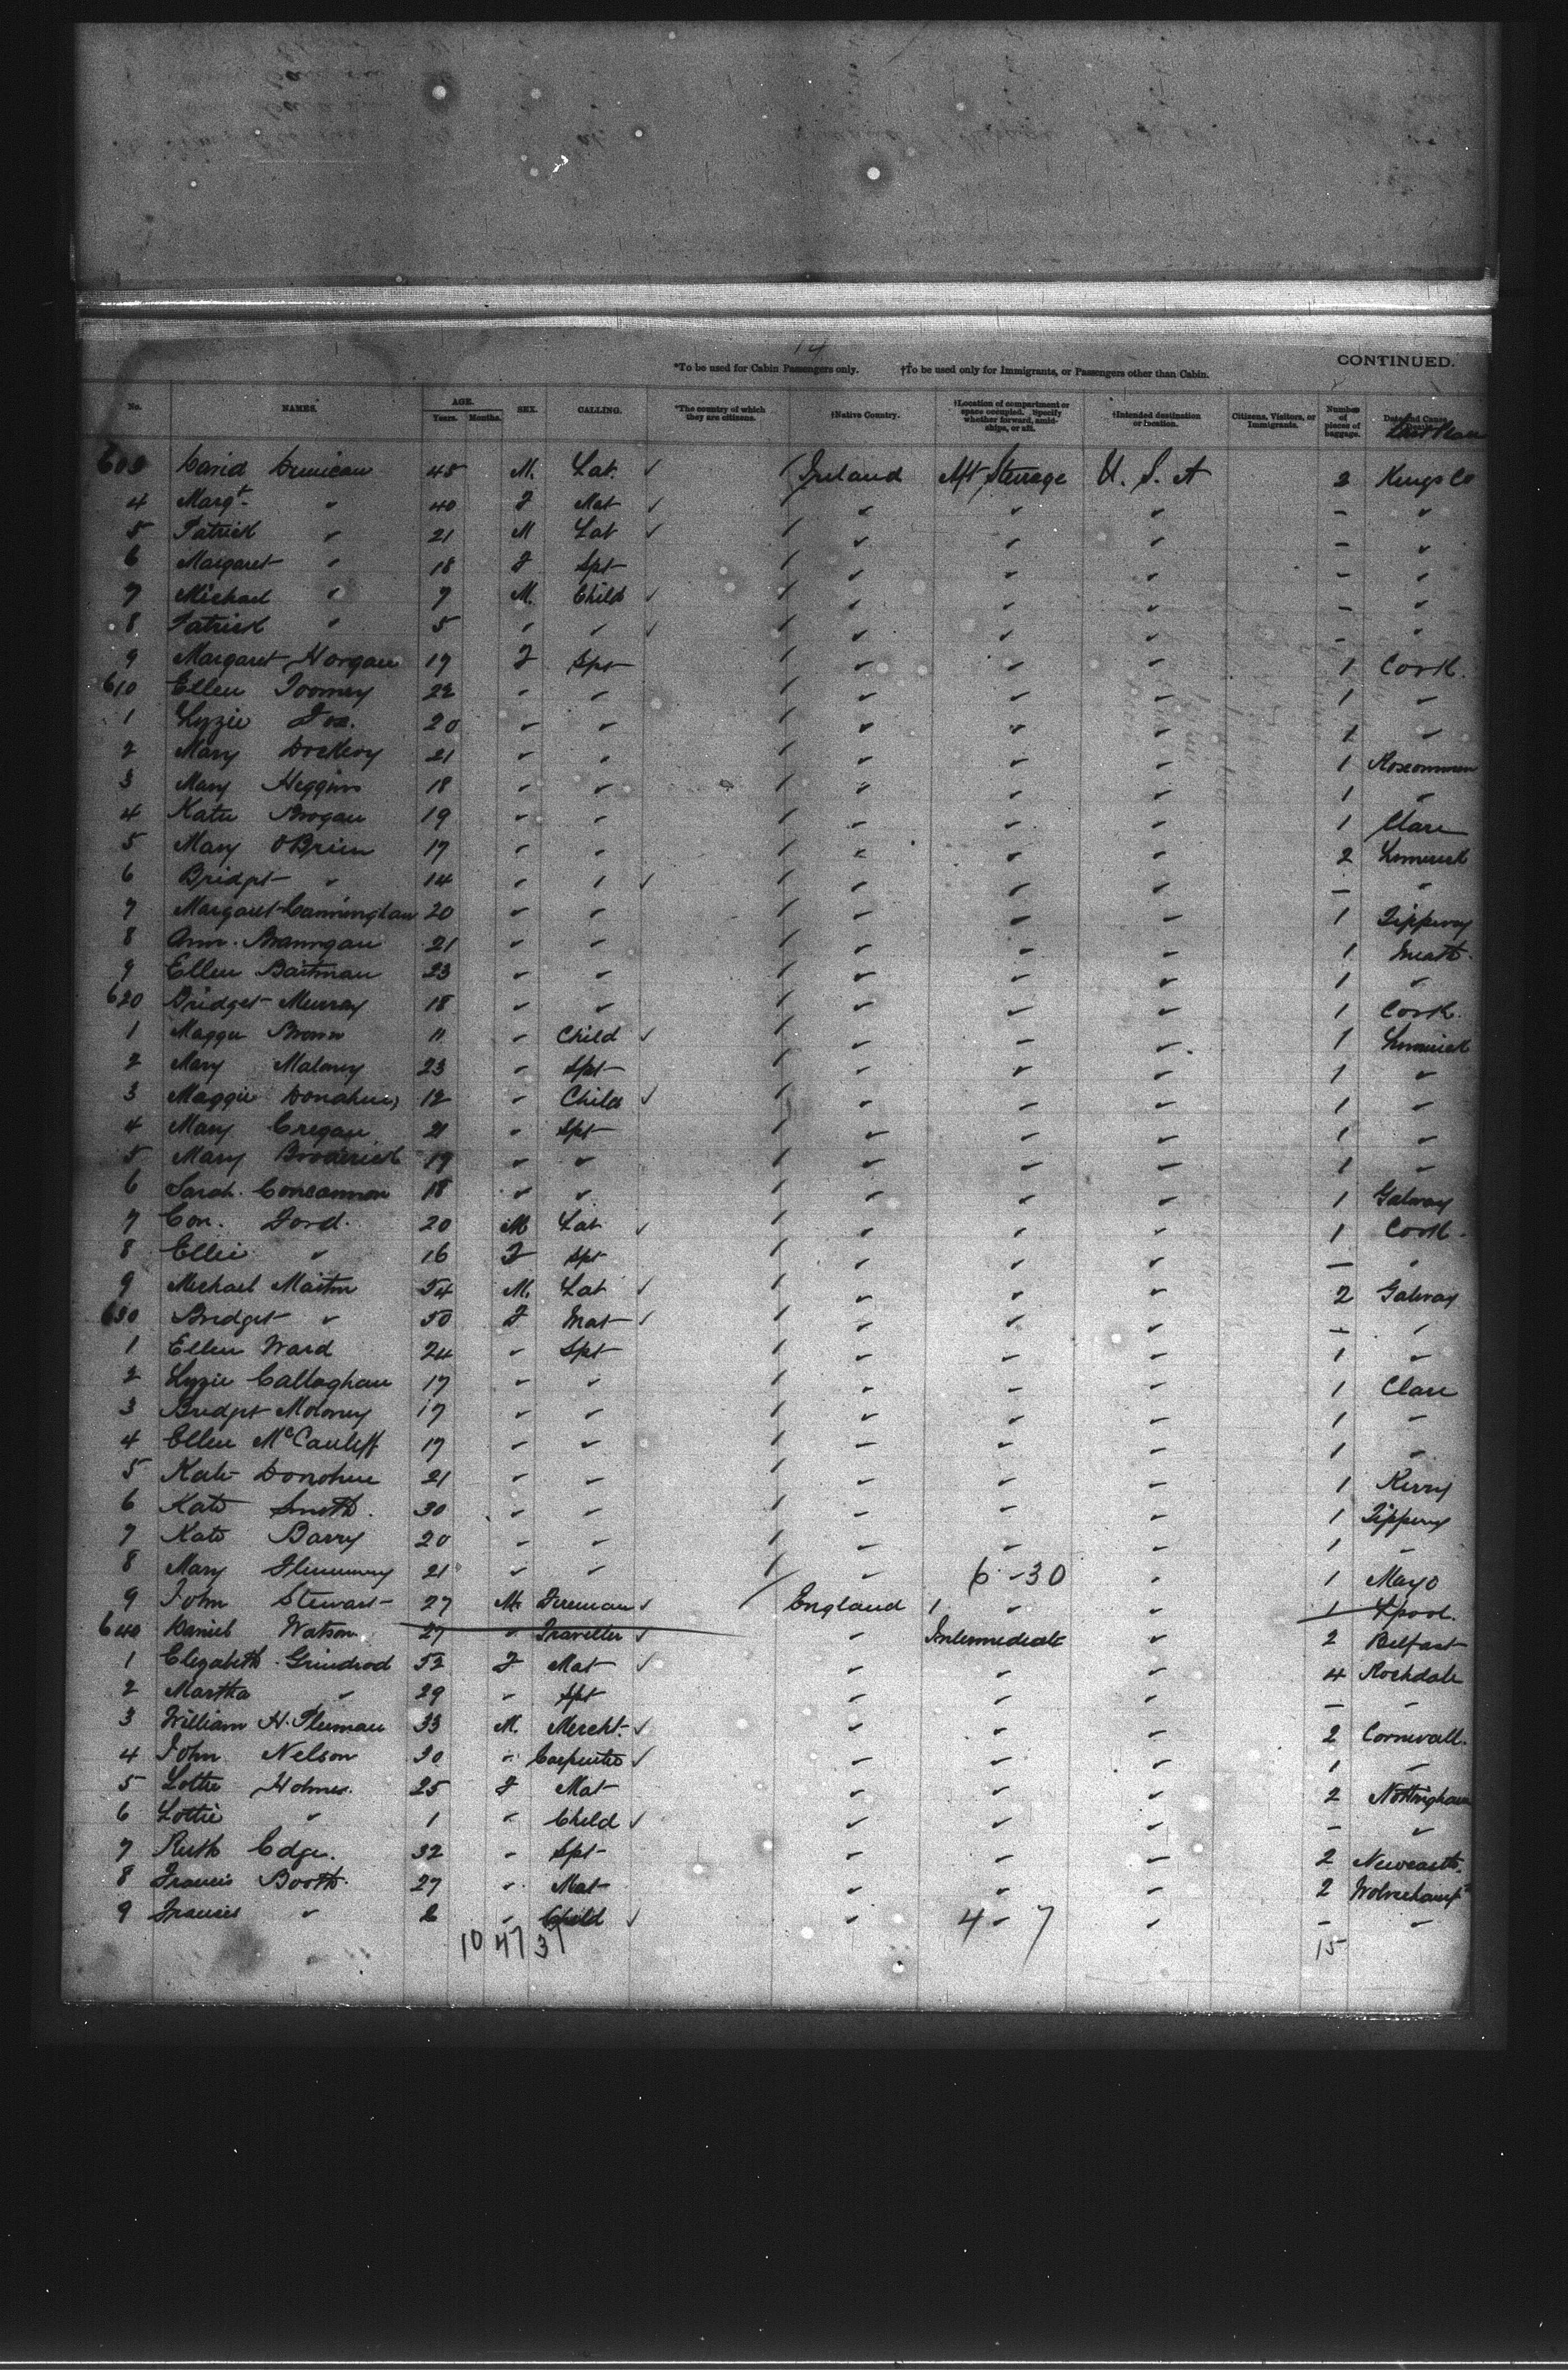 14
CONTINUED.
*To be used for Cabin Passengers only. †To be used only for Immigrants, or Passengers other than Cabin.
No. NAMES. AGE. Years. Months. SEX. CALLING. *The country of which they are citizens. †Native Country. †Location of compartment or space occupied. Specify whether forward, amidships, or aft. †Intended destination or location. Citizens, Visitors, or Immigrants. Number of pieces of baggage. Date and Cause of Death.
603 David 45 M. Lab. ✓ Ireland Aft Steerage U. S. A 2 Kings Co
4 Margt. " 40 F Mat ✓ " " " - "
5 Patrick " 21 M Lab ✓ " " " - "
6 Margaret " 18 F Spt " " " - "
7 Michael " 7 M. Child ✓ " " " - "
8 Patrick " 5 " " ✓ " " " - "
9 Margaret Horgan 17 F Spt " " " 1 Cork.
610 Ellen Toomey 22 " " " " " 1 "
1 Lyzie Fox. 20 " " " " " 1 "
2 Mary Dockery 21 " " " " " 1 Roscommon
3 Mary Higgins 18 " " " " " 1 "
4 Kate Brogan 19 " " " " " 1 Clare
5 Mary O'Brien 17 " " " " " 2 Limerick
6 Bridget " 14 " " ✓ " " " - "
7 Margaret Cunningham 20 " " " " " 1 Tipperary
8 Ann Brannigan 21 " " " " " 1 Meath.
9 Ellen Baitman 23 " " " " " 1 "
620 Bridget Murray 18 " " " " " 1 Cork.
1 Maggie Brown 11 " Child ✓ " " " 1 Limerick
2 Mary Malony 23 " Spt " " " 1 "
3 Maggie Donahue 12 " Child ✓ " " " 1 "
4 Mary Cregan 21 " Spt " " " 1 "
5 Mary Broderick 19 " " " " " 1 "
6 Sarah Concannon 18 " " " " " 1 Galway
7 Con. Ford. 20 M Lab ✓ " " " 1 Cork.
8 Ellie " 16 F Spt " " " - "
9 Michael Martin 54 M. Lab ✓ " " " 2 Galway
630 Bridget " 50 F Mat ✓ " " " - "
1 Ellen Ward 24 " Spt " " " 1 "
2 Lyzie Callaghan 17 " " " " " 1 Clare
3 Bridget Moloney 17 " " " " " 1 "
4 Ellen McCauliff 17 " " " " " 1 "
5 Kate Donohue 21 " " " " " 1 Kerry
6 Kate Smith. 30 " " " " " 1 Tipperary
7 Kate Barry 20 " " " " " 1 "
8 Mary Flemming 21 " " " 6 - 30 " 1 Mayo
9 John Stewart 27 M. Fireman ✓ England 1 " " 1 Lpool.
640 Daniel Watson 27 " Traveller ✓ " Intermediate " 2 Belfast
1 Elizabeth Grindrod 52 F Mat ✓ " " " 4 Rochdale
2 Martha " 29 " Spt " " " - "
3 William H. 33 M. Mercht. ✓ " " " 2 Cornwall.
4 John Nelson 30 " Carpenter ✓ " " " 1 "
5 Lottie Holmes. 25 F Mat " " " 2 Nottingham
6 Lottie " 1 " Child ✓ " " " - "
7 Ruth Edge. 32 " Spt " " " 2 Newcastle.
8 Francis Booth. 27 " Mat " " " 2 Wolverhampt
9 Frances " 2 " Child ✓ " 4 - 7 " - "
10 47 37 15